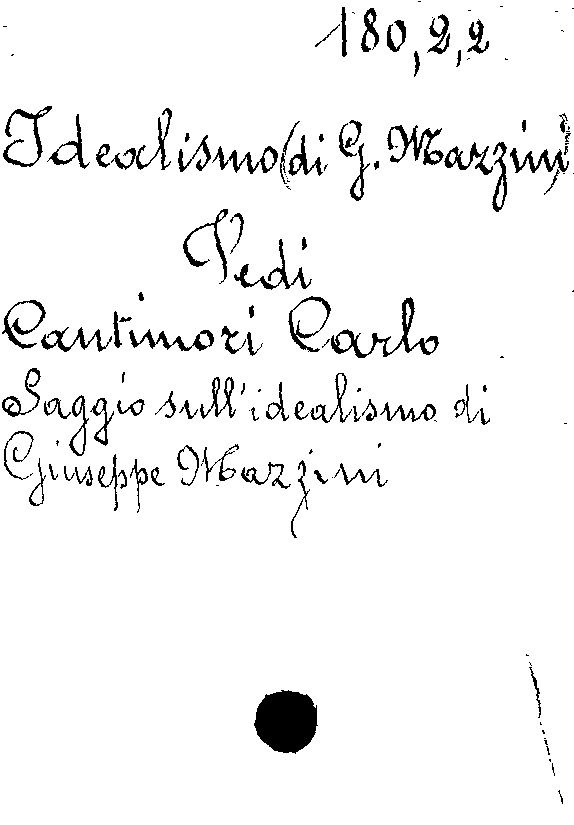 180,2,2
Idealismo (di G. Mazzini)
Vedi
Cantimori Carlo
Saggio sull'idealismo di
Giuseppe Mazzini